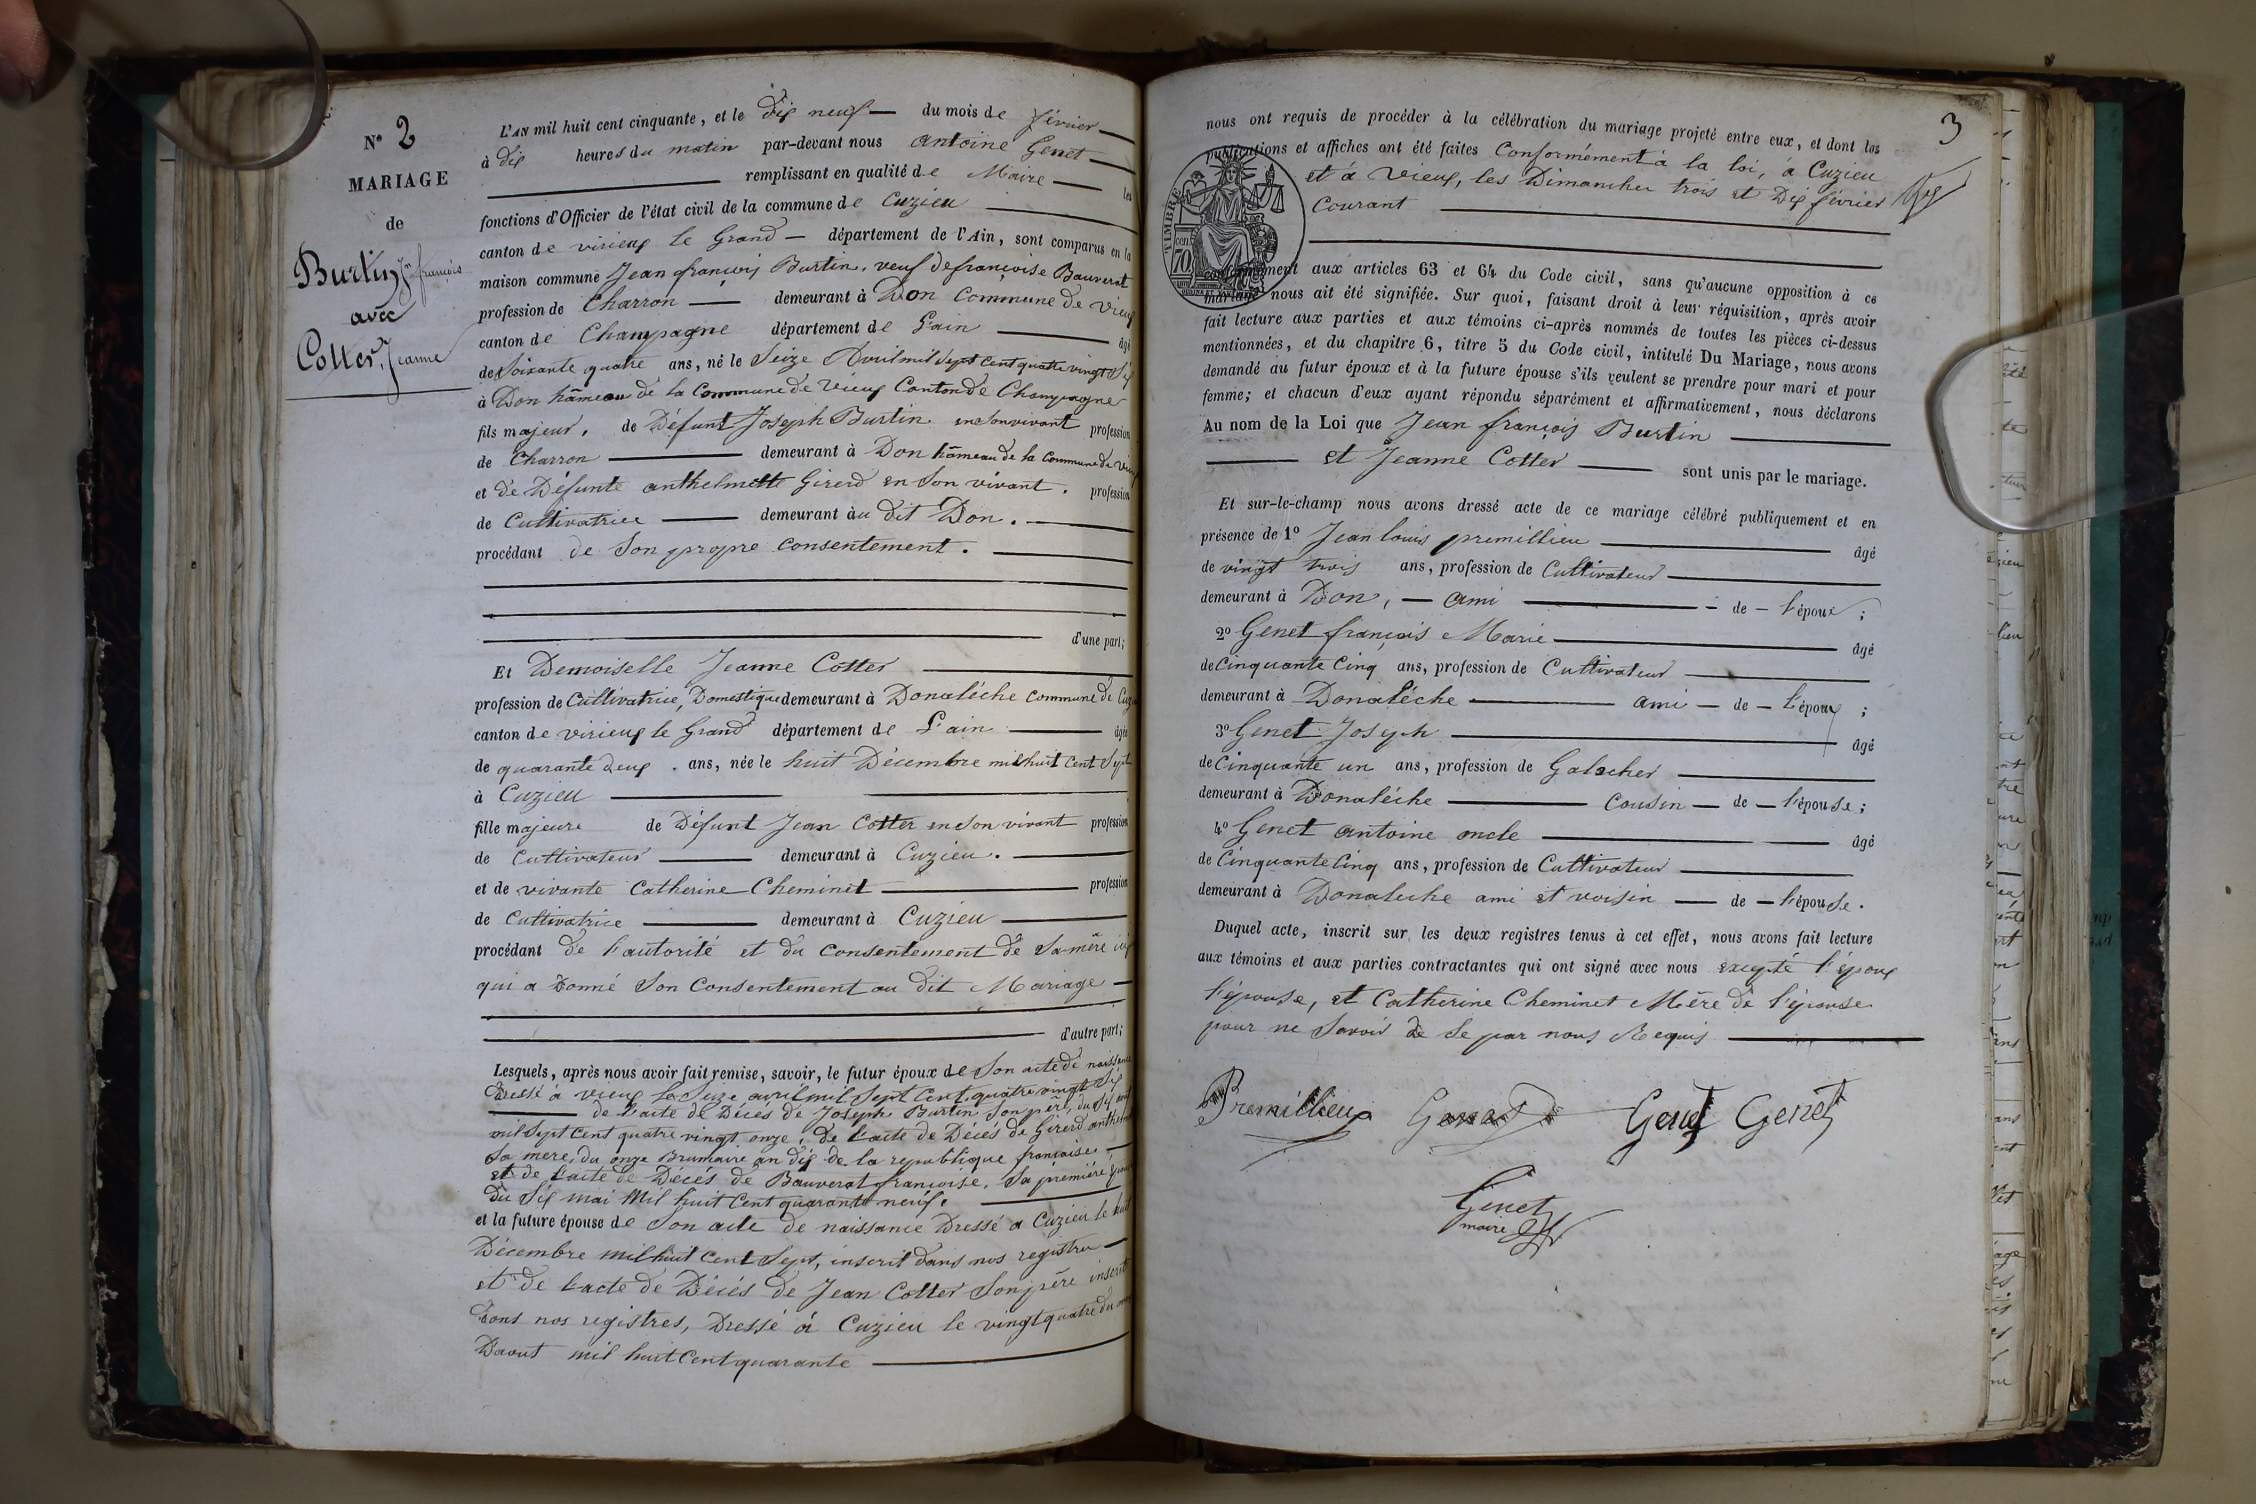 N° 2
MARIAGE
de
Burtin Jn françois
avec
Cotter, Jeanne
L'AN mil huit cent cinquante, et le dix neuf du mois de février
à dix heures du matin par-devant nous antoine Genet
remplissant en qualité de Maire les
fonctions d'Officier de l'état civil de la commune de Cuzieu
canton de virieux le Grand département de l'Ain, sont comparus en la
maison commune Jean françois Burtin, veuf de françoise Bauverat
profession de Charron demeurant à Don Commune de vieux
canton de Champagne département de L'ain âgé
de Soixante quatre ans, né le Seize Avril mil Sept Cent quatre vingt Six
à Don hâmeau de la Commune de Vieux Canton de Champagne
fils majeur, de Défunt Joseph Burtin en Son vivant profession
de Charron demeurant à Don hâmeau de la Commune de vieux
et de Défunte anthelmette Girerd en Son vivant. profession
de Cultivatrice demeurant au dit Don.
procédant de Son propre consentement.
d'une part;
Et Demoiselle Jeanne Cotter
profession de Cultivatrice, Domestique demeurant à Donalêche commune de
canton de virieux le Grand département de L'ain âgée
de quarante deux . ans, née le huit Décembre mil huit Cent Sept
à Cuzieu
fille majeure de Défunt Jean Cotter en Son vivant profession
de Cultivateur demeurant à Cuzieu.
et de vivante Catherine Cheminet profession
de Cultivatrice demeurant à Cuzieu
procédant de L'autorité et du consentement de Sa mère
qui a Donné Son Consentement au dit Mariage
d'autre part;
Lesquels, après nous avoir fait remise, savoir, le futur époux de Son acte de naissance
Dressé à vieux le Seize avril mil Sept Cent quatre vingt Six
de L'acte de Décès de Joseph Burtin Son père, du Six
mil Sept Cent quatre vingt onze, De L'acte de Décès de Girerd
Sa mère, du onze Brumaire an dix de la république française,
et de L'acte de Décès de Bauverat françoise, Sa première
du Six mai Mil huit Cent quarante neuf.
et la future épouse de Son acte de naissance Dressé a Cuzieu le huit
Décembre mil huit Cent Sept, inscrit dans nos registres
et de L'acte de Décès de Jean Cotter Son père inscrit
Dans nos registres, Dressé à Cuzieu le vingt quatre du
D'aout mil huit Cent quarante
3
nous ont requis de procéder à la célébration du mariage projeté entre eux, et dont les
publications et affiches ont été faites Conformément à la loi, à Cuzieu
et à vieux, les Dimanches trois et Dix février
Courant
TIMBRE
70
conformément aux articles 63 et 64 du Code civil, sans qu'aucune opposition à ce
mariage nous ait été signifiée. Sur quoi, faisant droit à leur réquisition, après avoir
fait lecture aux parties et aux témoins ci-après nommés de toutes les pièces ci-dessus
mentionnées, et du chapitre 6, titre 5 du Code civil, intitulé Du Mariage, nous avons
demandé au futur époux et à la future épouse s'ils veulent se prendre pour mari et pour
femme; et chacun d'eux ayant répondu séparément et affirmativement, nous déclarons
Au nom de la Loi que Jean françois Burtin
et Jeanne Cotter sont unis par le mariage.
Et sur-le-champ nous avons dressé acte de ce mariage célébré publiquement et en
présence de 1° Jean louis premillieu âgé
de vingt trois ans, profession de Cultivateur
demeurant à Don, ami de l'époux;
2° Genet françois Marie âgé
de Cinquante Cinq ans, profession de Cultivateur
demeurant à Donalêche ami de l'époux;
3° Genet Joseph âgé
de Cinquante un ans, profession de Galocher
demeurant à Donalêche Cousin de l'épouse;
4° Genet antoine oncle âgé
de Cinquante Cinq ans, profession de Cultivateur
demeurant à Donaleche ami et voisin de l'épouse.
Duquel acte, inscrit sur les deux registres tenus à cet effet, nous avons fait lecture
aux témoins et aux parties contractantes qui ont signé avec nous excepté l'époux
l'épouse, et Catherine Cheminet Mère de l'épouse
pour ne Savoir de Ce par nous Requis
Premillieux Genet Genet Genet
Genet
maire